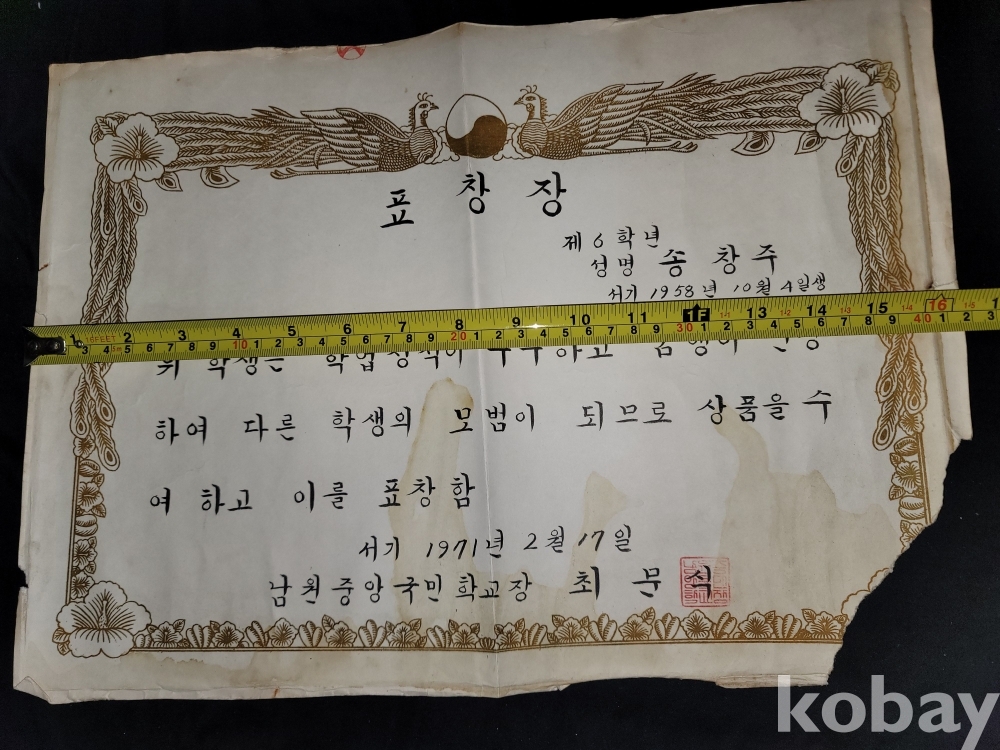 표창장
제6학년
성명 송창주
서기 1958년 10월 4일생
위 학생은 학업성적이 우수하고
하여 다른 학생의 모범이 되므로 상품을 수
여 하고 이를 표창함
서기 1971년 2월 17일
남원중앙국민학교장 최문식
kobay